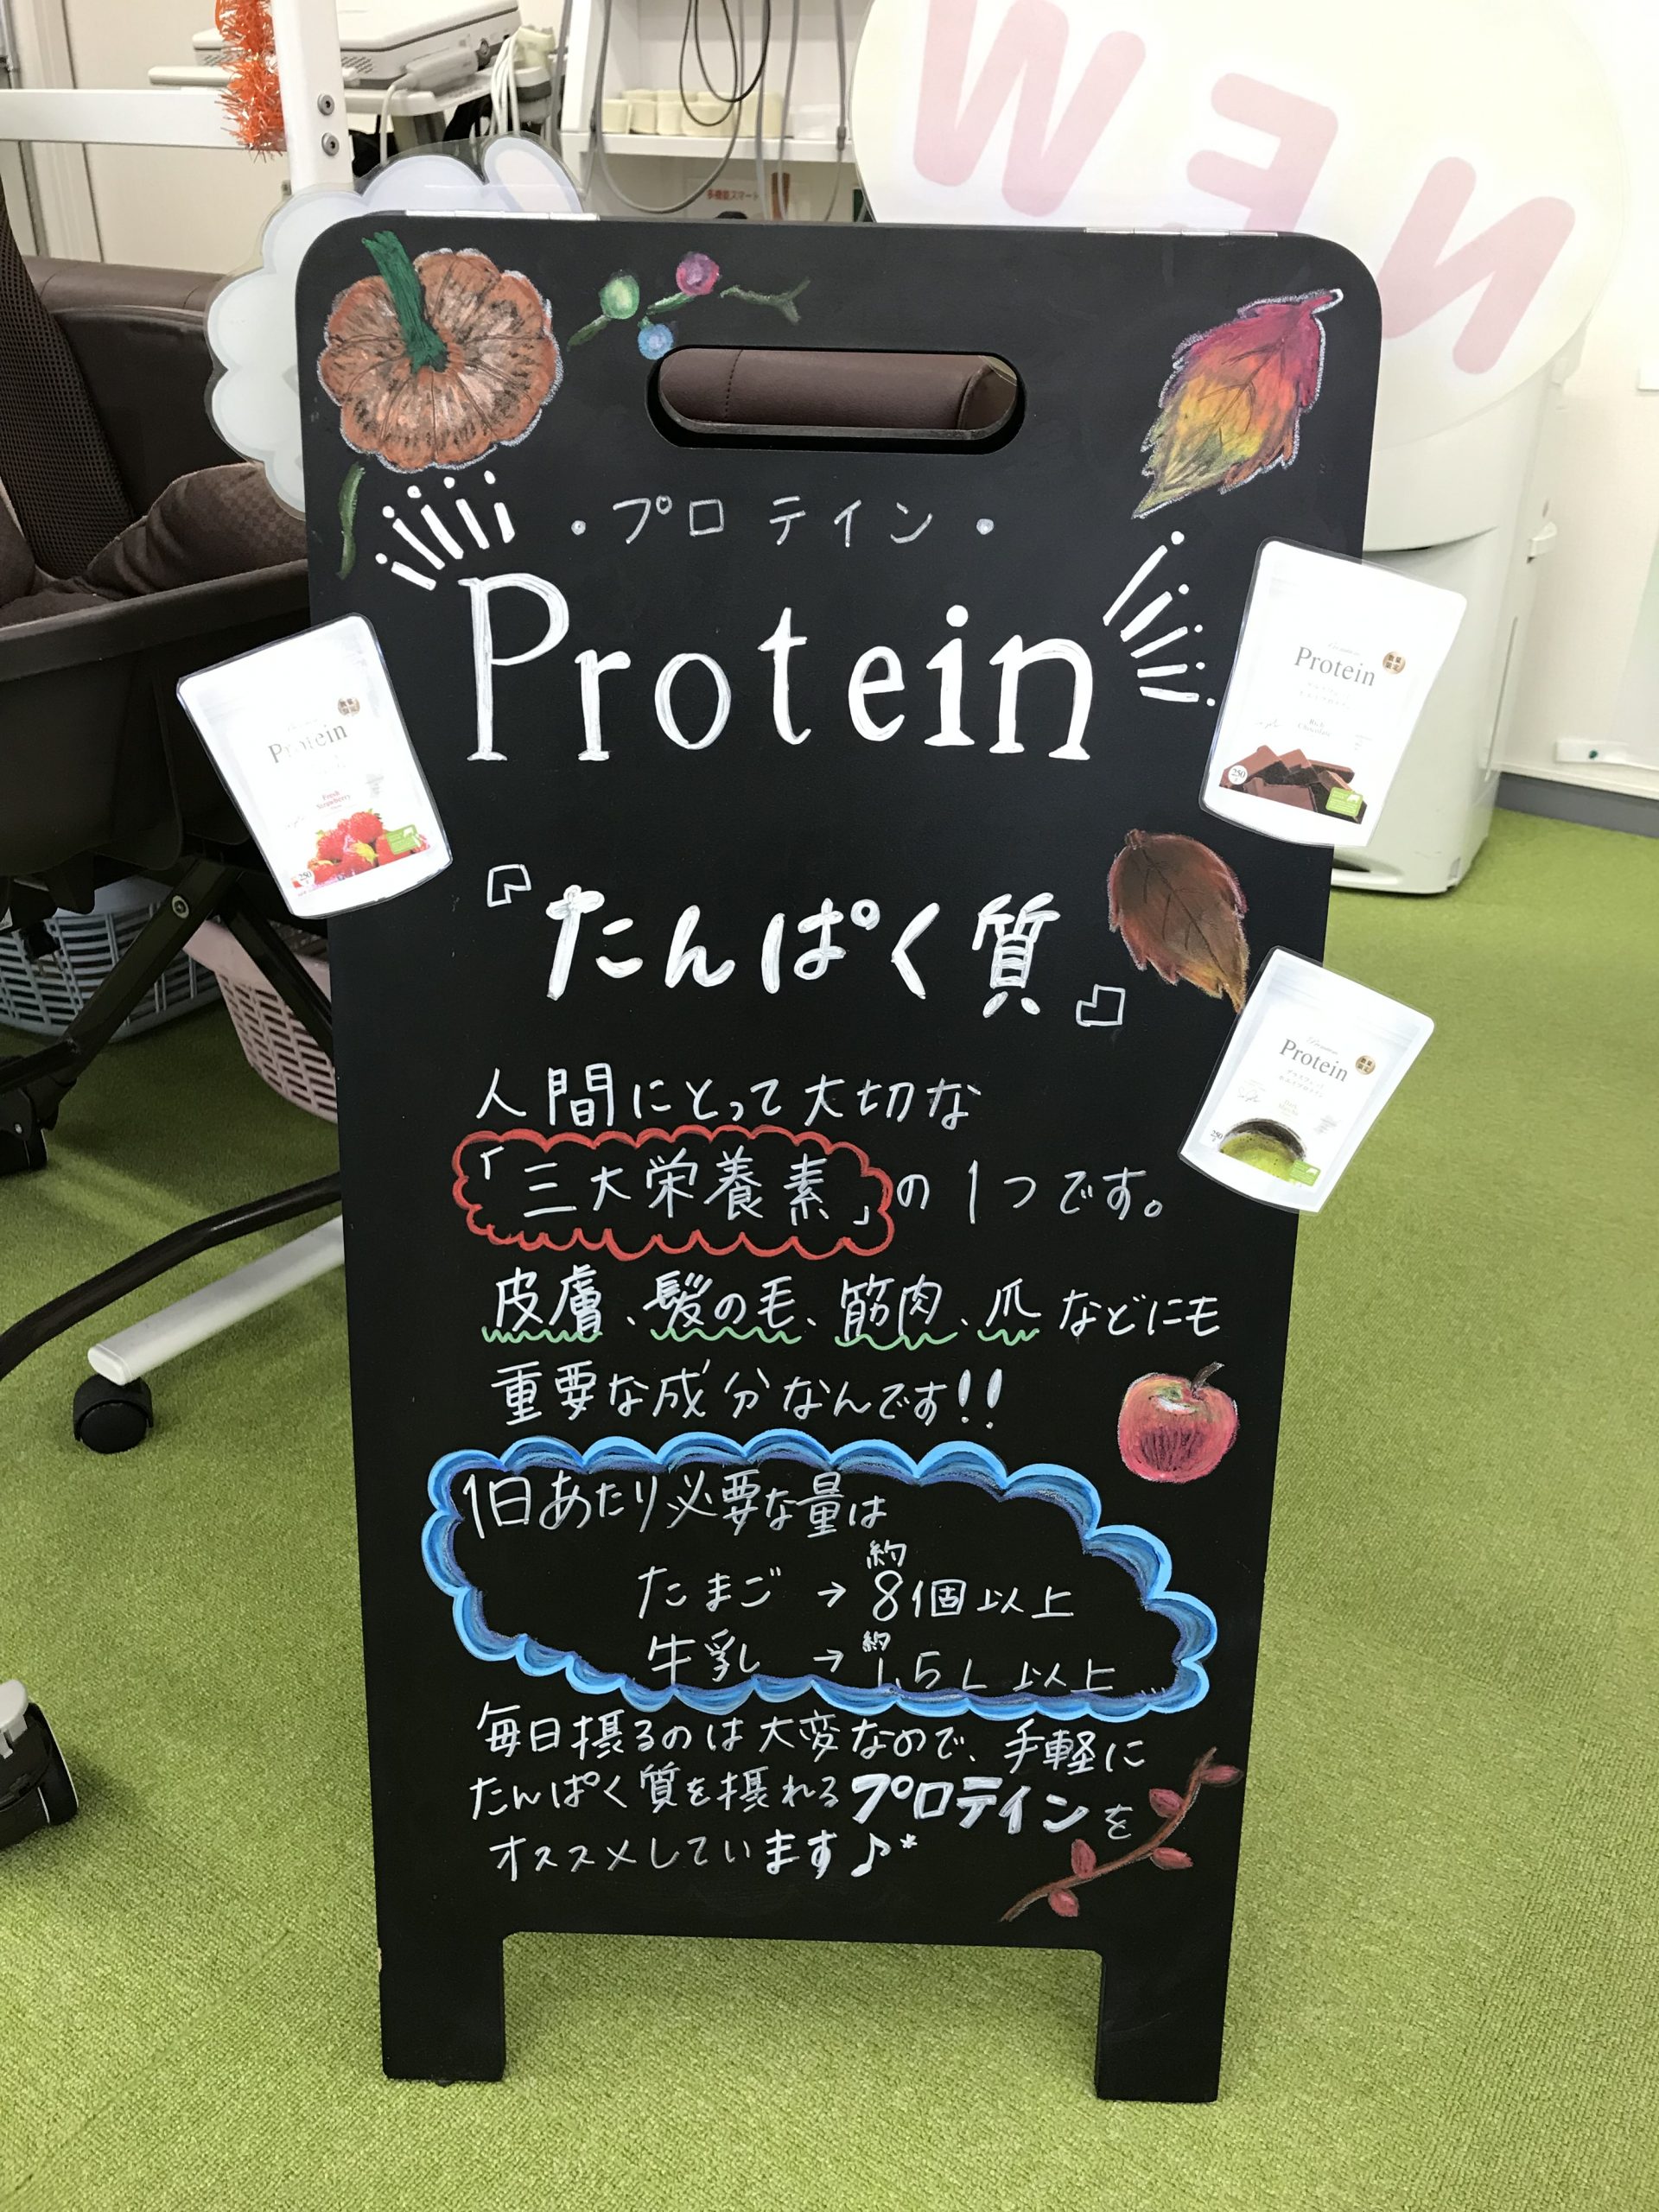 多機能スマート
NEW
・プロテイン・
Protein
Protein
Rich
Chocolate
250
Protein
Fresh
Strawberry
250
『たんぱく質』
Premium
Protein
250
人間にとって大切な
「三大栄養素」の1つです。
皮膚、髪の毛、筋肉、爪などにも
重要な成分なんです!!
1日あたり必要な量は
たまご → 約8個以上
牛乳 → 約1.5L以上...
毎日摂るのは大変なので、手軽に
たんぱく質を摂れるプロテインを
オススメしています♪*